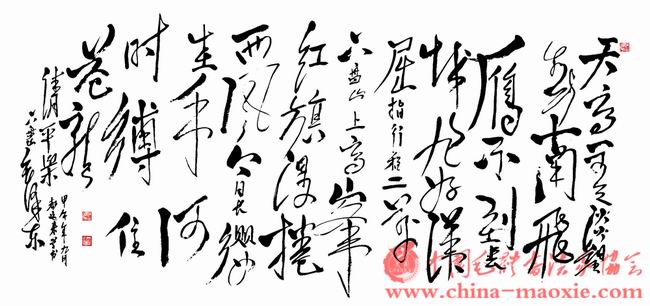 天高云淡望
断南飞
雁不到长
城非好汉
屈指行程二万
六盘山上高峰
红旗漫捲
西风今日长缨
在手何
时缚住
苍龙
清平乐
六盘毛泽东
甲午年九月
中国毛体书法家协会
www.china-maoxie.com